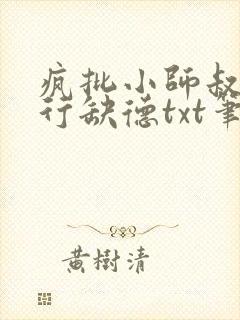 疯批小師叔
行缺德txt筆
黃樹清